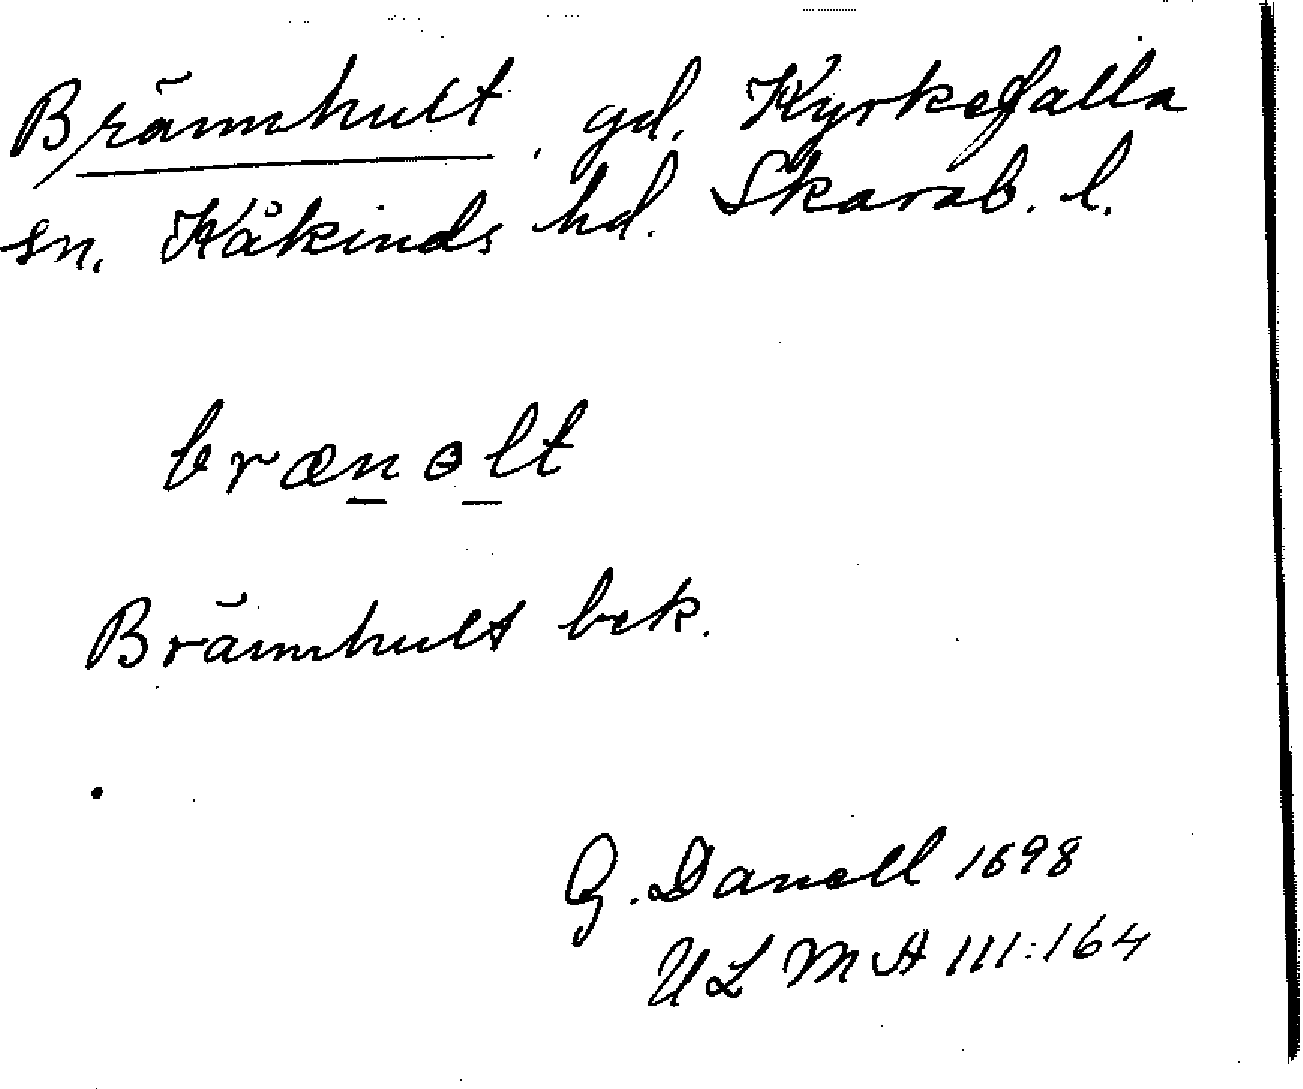 Brännhult, gd. Kyrkefalla
sn. Kåkinds hd. Skarab. l.
brænɵlt
Brännhult bek.
G. Danell 1898
ULMA III:164